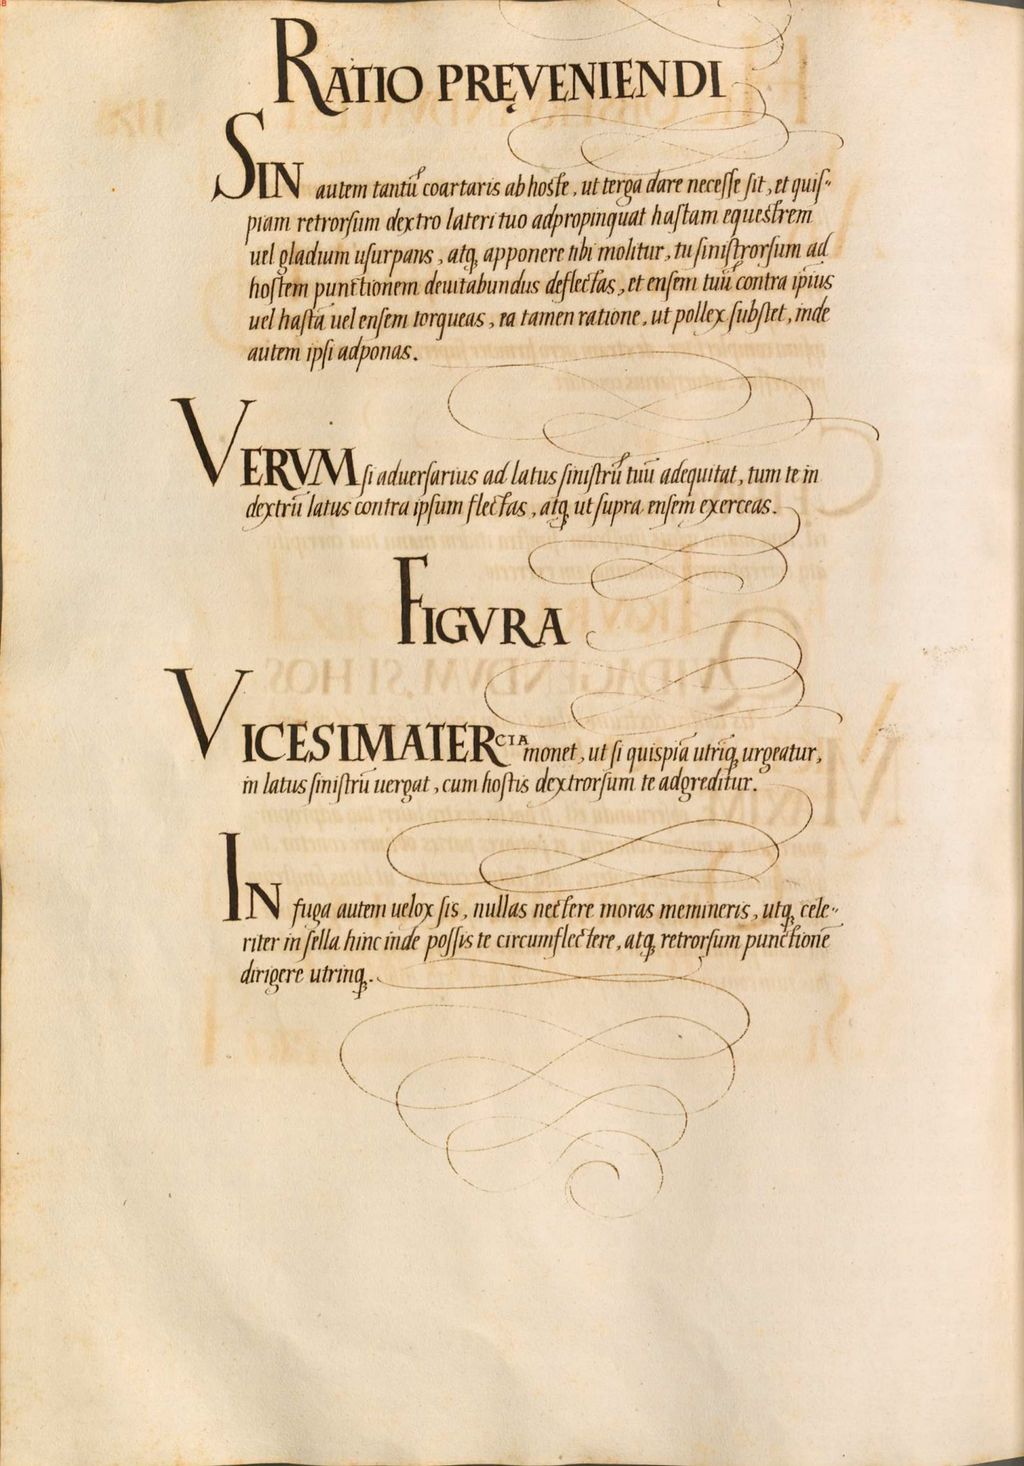 RATIO PRĘVENIENDI
SIN autem tantū coartaris ab hoste, ut terga dare necesse sit, et quis-
piam retrorsum dextro lateri tuo adpropinquat hastam equestrem
uel gladium usurpans, atq; apponere tibi molitur, tu sinistrorsum ad
hostem punctionem deuitabundus deflectas, et ensem tuū contra ipius
uel hastā uel ensem torqueas, ea tamen ratione, ut pollex substet, inde
autem ipsi adponas.
VERVM si aduersarius ad latus sinistrū tuū adequitat, tum te in
dextrū latus contra ipsum flectas, atq; ut supra ensem exerceas.
FIGVRA
VICESIMATERCIA monet, ut si quispiā utriq; urgeatur,
in latus sinistrū uergat, cum hostis dextrorsum te adgreditur.
IN fuga autem uelox sis, nullas nectere moras memineris, utq; cele-
riter in sella hinc inde possis te circumflectere, atq; retrorsum punctionē
dirigere utrinq;.